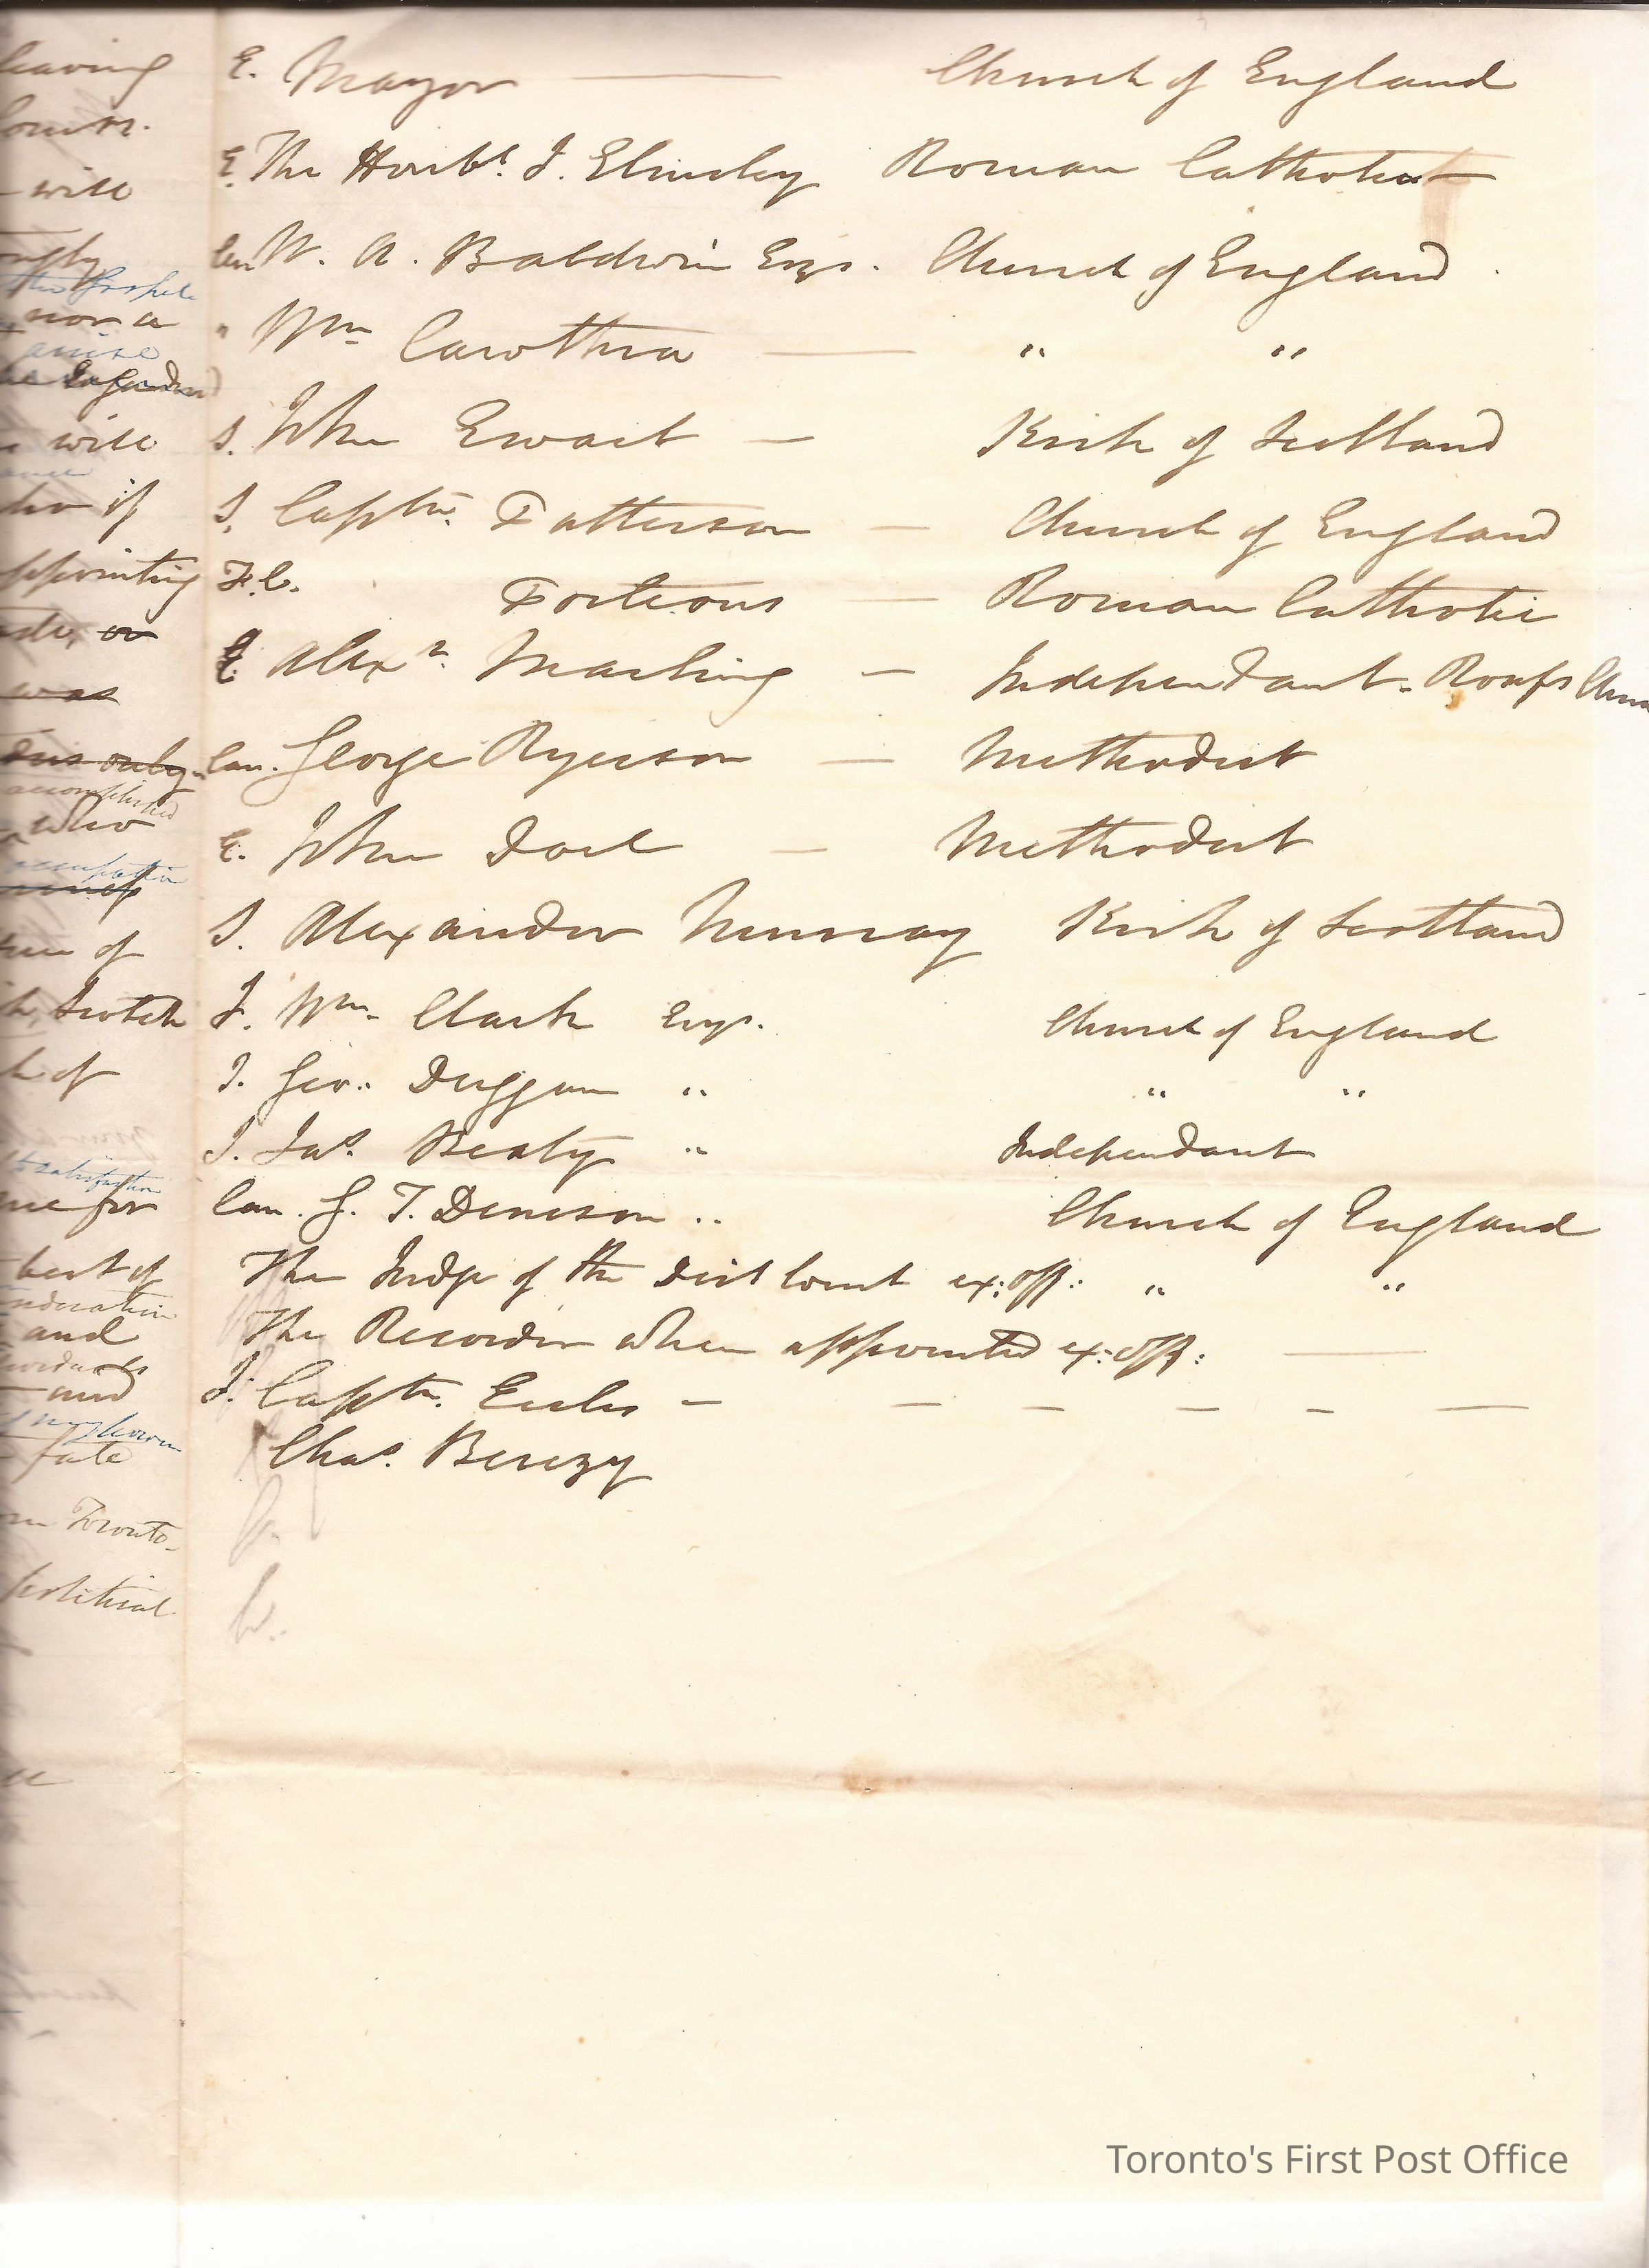 leaving
will
nor a
will
if
appointing
or
was
only
who
of
Scotch
of
satisfaction
me for
best of
and
and
fate
Toronto
political
E. Mayor — Church of England
E. The Honbl. J. Elmsley Roman Catholic
Can W. A. Baldwin Esqr. Church of England
" Wm Carothra — " "
S. John Ewart — Kirk of Scotland
I. Captn. Patterson — Church of England
F.C. Porteous — Roman Catholic
E. Alexr. Marling — Independant. Roafs
Can. George Ryerson — Methodist
E. John Doel — Methodist
S. Alexander Murray Kirk of Scotland
I. Wm. Clark Esqr. Church of England
I. Geo. Duggan " " "
I. Jas. Beaty " Independant
Can. G. T. Denison " Church of England
The Judge of the Dist Court ex: off: " "
The Recorder when appointed ex: off: —
I. Captn. Eccles — — — — — —
Chas. Berczy
Toronto's First Post Office